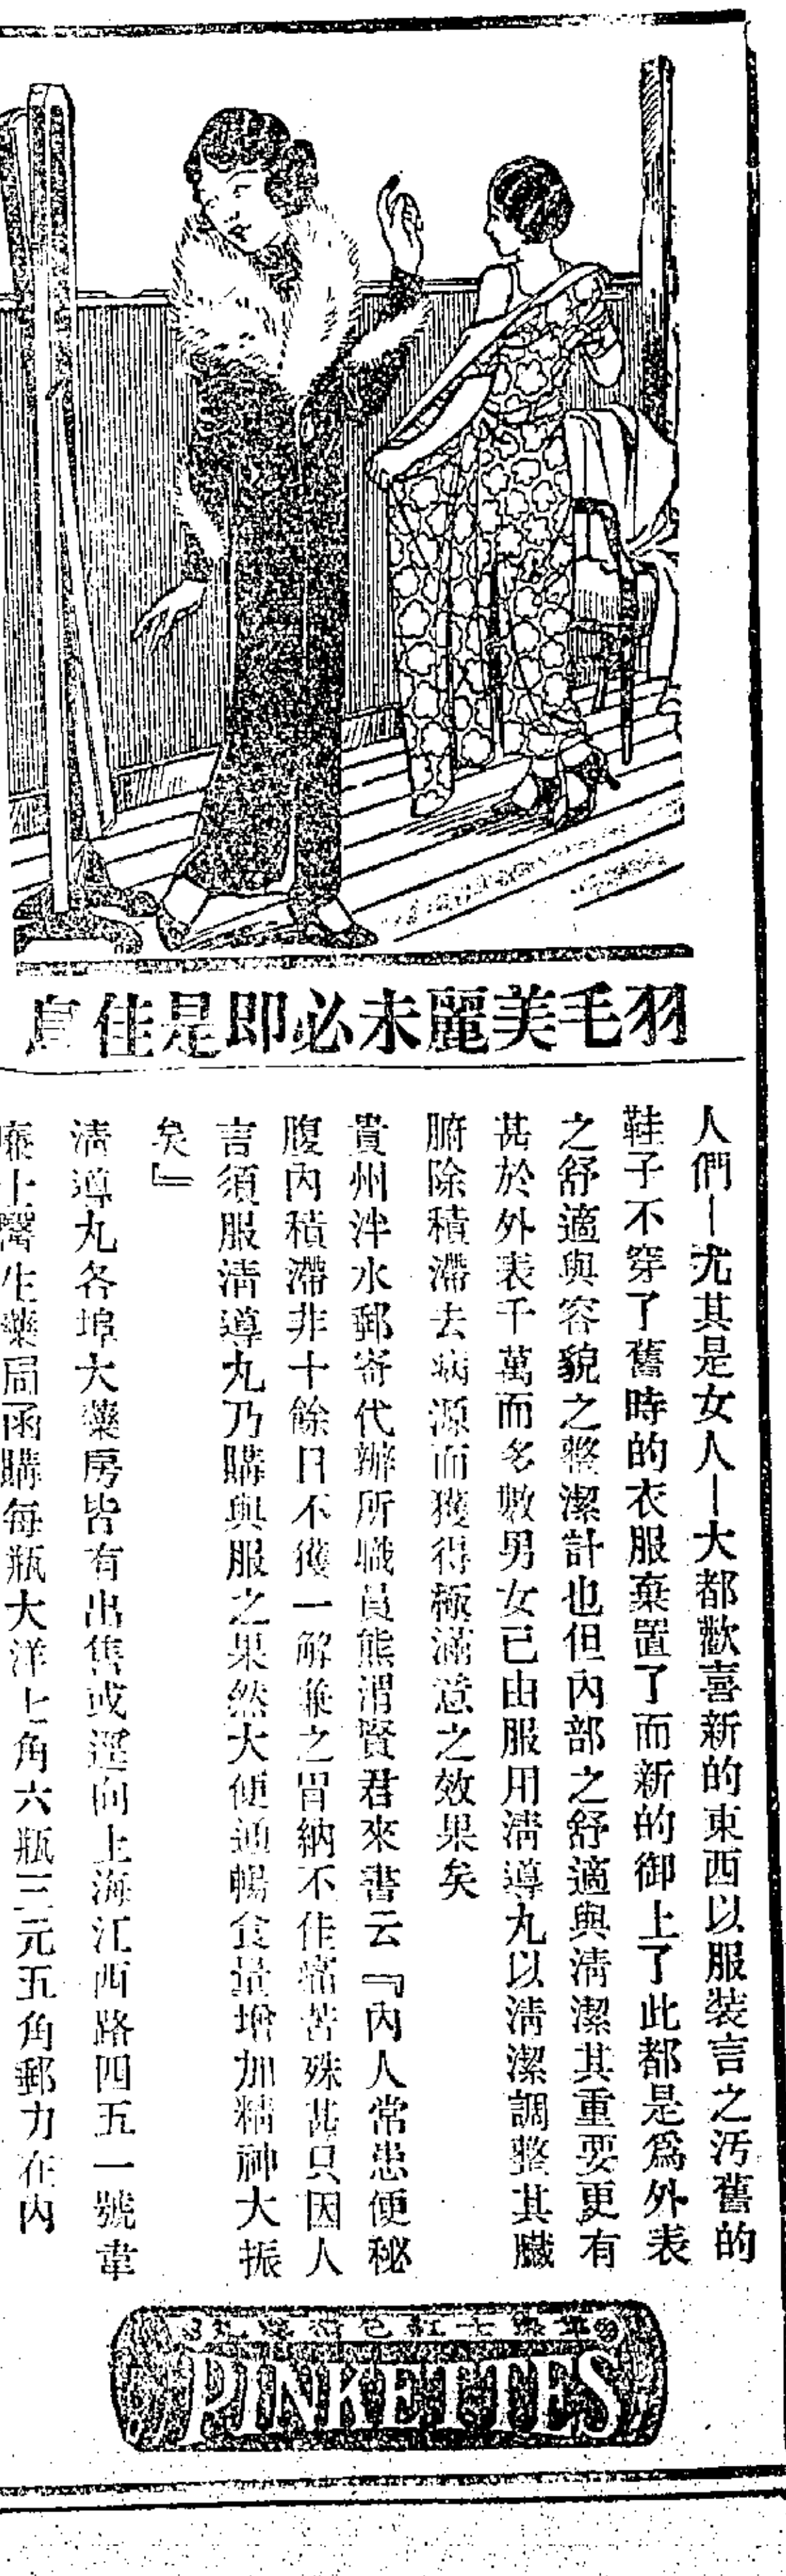 羽毛美麗未必即是佳鳥
人們—尤其是女人—大都歡喜新的東西以服裝言之汚舊的
鞋子不穿了舊時的衣服棄置了而新的御上了此都是爲外表
之舒適與容貌之整潔計也但內部之舒適與淸潔其重要更有
甚於外表千萬而多數男女已由服用淸導丸以淸潔調整其臟
腑除積滯去病源而獲得極滿意之效果矣
貴州泮水郵寄代辦所職員熊渭賢君來書云『內人常患便秘
腹內積滯非十餘日不獲一解兼之胃納不佳痛苦殊甚只因人
言須服淸導丸乃購與服之果然大便通暢食量增加精神大振
矣』
淸導丸各埠大藥房皆有出售或逕向上海江西路四五一號韋
廉士醫生藥局函購每瓶大洋七角六瓶三元五角郵力在內
紅色淸導丸
PINKETTES